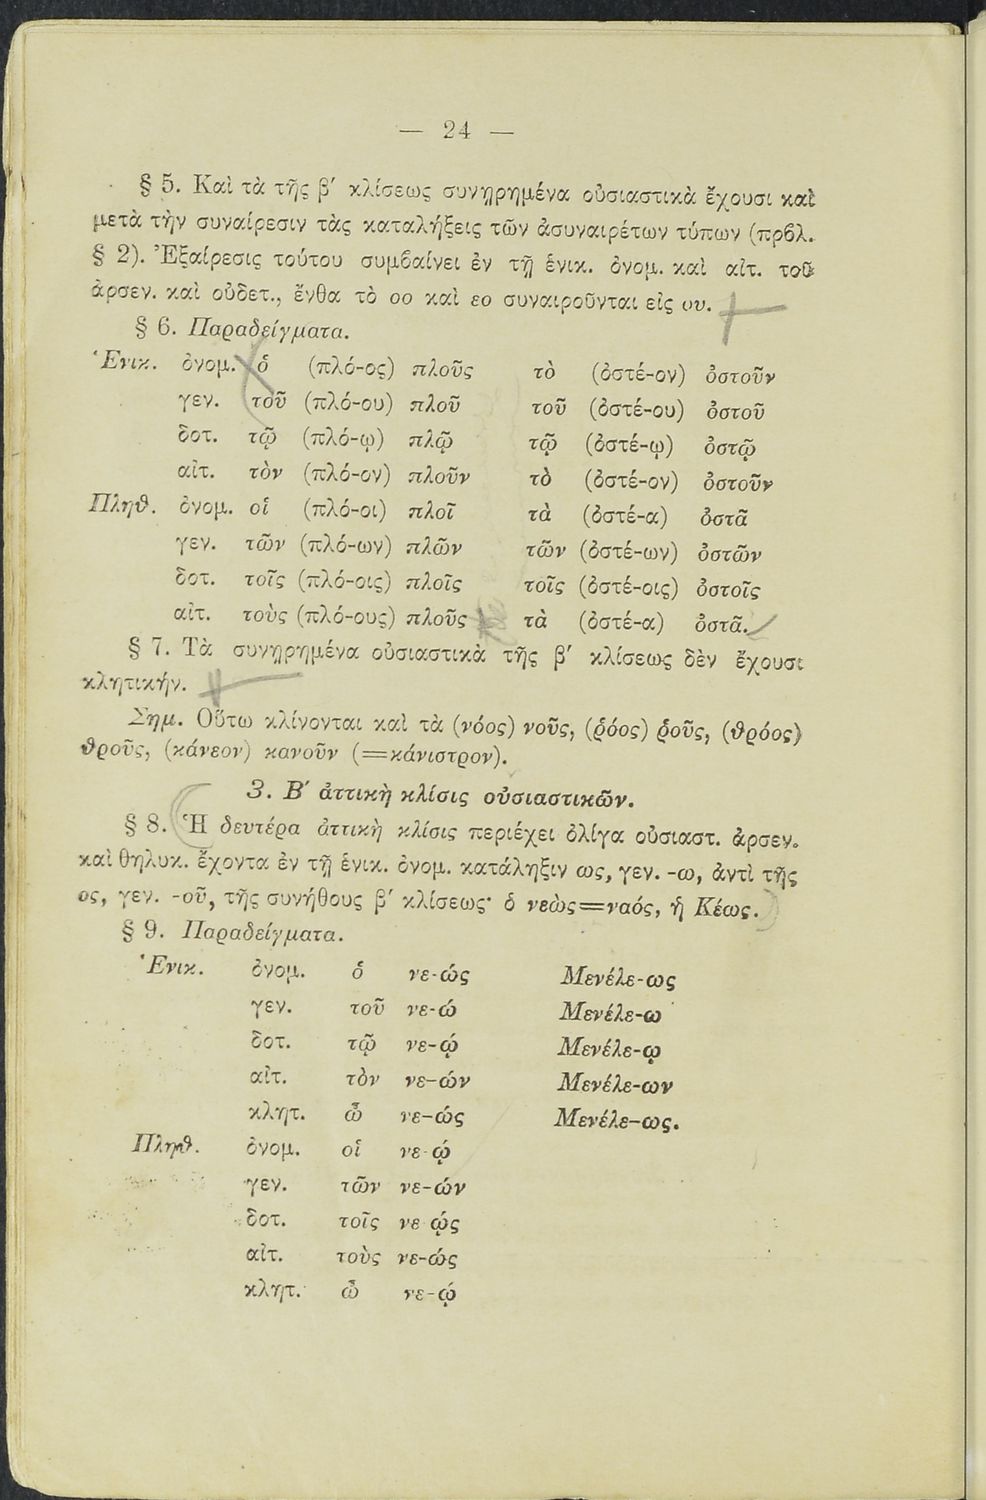 — 24 —
§ 5. Καὶ τὰ τῆς β′ κλίσεως συνῃρημένα οὐσιαστικὰ ἔχουσι καὶ
μετὰ τὴν συναίρεσιν τὰς καταλήξεις τῶν ἀσυναιρέτων τύπων (πρβλ.
§ 2). Ἐξαίρεσις τούτου συμβαίνει ἐν τῇ ἑνικ. ὀνομ. καὶ αἰτ. τοῦ
ἀρσεν. καὶ οὐδετ., ἔνθα τὸ οο καὶ εο συναιροῦνται εἰς ου.
§ 6. Παραδείγματα.
Ἑνικ. ὀνομ. ὁ (πλό-ος) πλοῦς τὸ (ὀστέ-ον) ὀστοῦν
γεν. τοῦ (πλό-ου) πλοῦ τοῦ (ὀστέ-ου) ὀστοῦ
δοτ. τῷ (πλό-ῳ) πλῷ τῷ (ὀστέ-ῳ) ὀστῷ
αἰτ. τὸν (πλό-ον) πλοῦν τὸ (ὀστέ-ον) ὀστοῦν
Πληθ. ὀνομ. οἱ (πλό-οι) πλοῖ τὰ (ὀστέ-α) ὀστᾶ
γεν. τῶν (πλό-ων) πλῶν τῶν (ὀστέ-ων) ὀστῶν
δοτ. τοῖς (πλό-οις) πλοῖς τοῖς (ὀστέ-οις) ὀστοῖς
αἰτ. τοὺς (πλό-ους) πλοῦς τὰ (ὀστέ-α) ὀστᾶ.
§ 7. Τὰ συνῃρημένα οὐσιαστικὰ τῆς β′ κλίσεως δὲν ἔχουσι
κλητικήν.
Σημ. Οὕτω κλίνονται καὶ τὰ (νόος) νοῦς, (ῥόος) ῥοῦς, (θρόος)
θροῦς, (κάνεον) κανοῦν (=κάνιστρον).
3. Β′ ἀττικὴ κλίσις οὐσιαστικῶν.
§ 8. Ἡ δευτέρα ἀττικὴ κλίσις περιέχει ὀλίγα οὐσιαστ. ἀρσεν.
καὶ θηλυκ. ἔχοντα ἐν τῇ ἑνικ. ὀνομ. κατάληξιν ως, γεν. -ω, ἀντὶ τῆς
ος, γεν. -οῦ, τῆς συνήθους β′ κλίσεως· ὁ νεὼς=ναός, ἡ Κέως.
§ 9. Παραδείγματα.
Ἑνικ. ὀνομ. ὁ νε-ώς Μενέλε-ως
γεν. τοῦ νε-ώ Μενέλε-ω
δοτ. τῷ νε-ῴ Μενέλε-ῳ
αἰτ. τὸν νε-ών Μενέλε-ων
κλητ. ὦ νε-ώς Μενέλε-ως.
Πληθ. ὀνομ. οἱ νε-ῴ
γεν. τῶν νε-ών
δοτ. τοῖς νε ῴς
αἰτ. τοὺς νε-ώς
κλητ. ὦ νε-ῴ